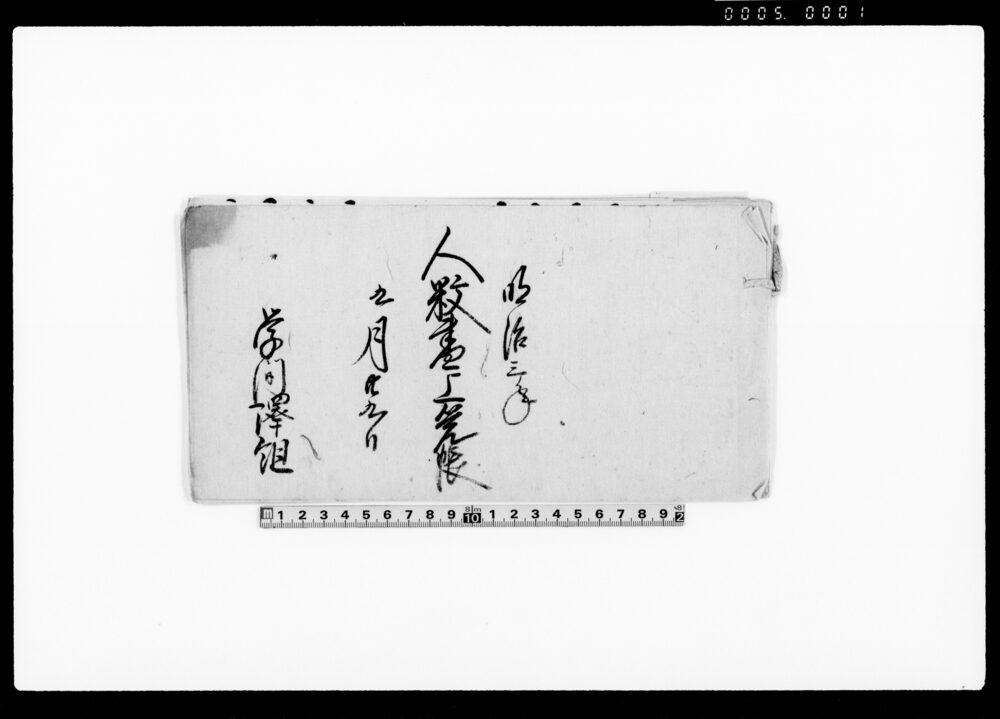 0005. 0001
明治三年
人数書上覚帳
五月廿九日
学間澤組
1 2 3 4 5 6 7 8 9 10 1 2 3 4 5 6 7 8 9 2